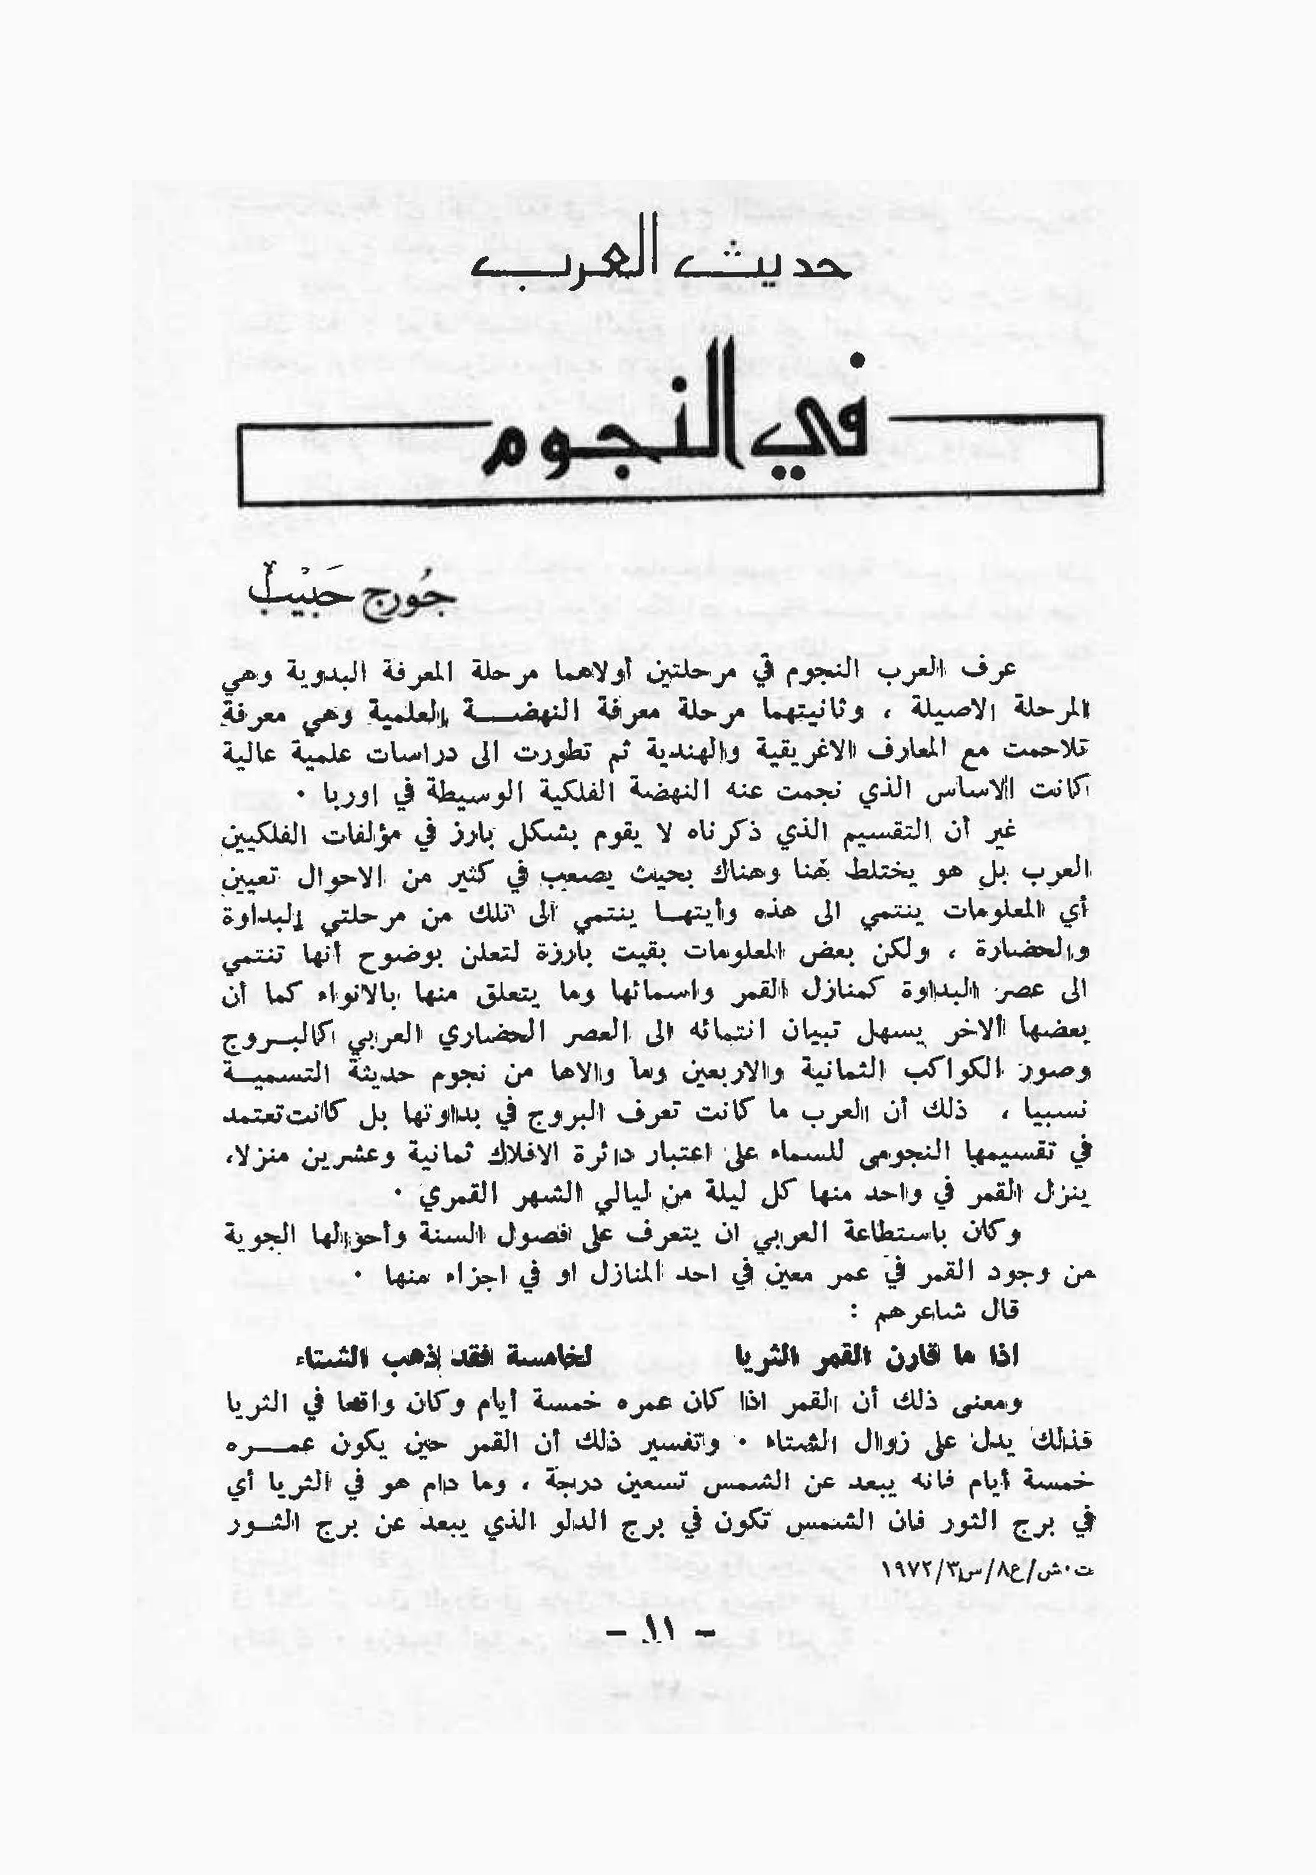 حديث العرب
في النجوم
جُورج حَبيْب
عرف العرب النجوم في مرحلتين أولاهما مرحلة المعرفة البدوية وهي
المرحلة الاصيلة ، وثانيتهما مرحلة معرفة النهضـــة العلمية وهي معرفة
تلاحمت مع المعارف الاغريقية والهندية ثم تطورت الى دراسات علمية عالية
كانت الاساس الذي نجمت عنه النهضة الفلكية الوسيطة في اوربا ٠
غير أن التقسيم الذي ذكرناه لا يقوم بشكل بارز في مؤلفات الفلكيين
العرب بل هو يختلط هنا وهناك بحيث يصعب في كثير من الاحوال تعيين
أي المعلومات ينتمي الى هذه وأيتهـا ينتمي الى تلك من مرحلتي البداوة
والحضارة ، ولكن بعض المعلومات بقيت بارزة لتعلن بوضوح أنها تنتمي
الى عصر البداوة كمنازل القمر واسمائها وما يتعلق منها بالانواء كما أن
بعضها الاخر يسهل تبيان انتمائه الى العصر الحضاري العربي كالبـروج
وصور الكواكب الثمانية والاربعين وما والاها من نجوم حديثة التسميـة
نسبيا ، ذلك أن العرب ما كانت تعرف البروج في بداوتها بل كانت تعتمد
في تقسيمها النجومى للسماء على اعتبار دائرة الافلاك ثمانية وعشرين منزلا،
ينزل القمر في واحد منها كل ليلة من ليالي الشهر القمري ٠
وكان باستطاعة العربي ان يتعرف على فصول السنة وأحوالها الجوية
من وجود القمر في عمر معين في احد المنازل او في اجزاء منها ٠
قال شاعرهم :
اذا ما قارن القمر الثريا لخامسة فقد ذهب الشتاء
ومعنى ذلك أن القمر اذا كان عمره خمسة أيام وكان واقعا في الثريا
فذلك يدل على زوال الشتاء ٠ وتفسير ذلك أن القمر حين يكون عمـــره
خمسة أيام فانه يبعد عن الشمس تسعين درجة ، وما دام هو في الثريا أي
في برج الثور فان الشمس تكون في برج الدلو الذي يبعد عن برج الثـور
ت٠ش/ع٨/س٣/١٩٧٢
- ١١ -